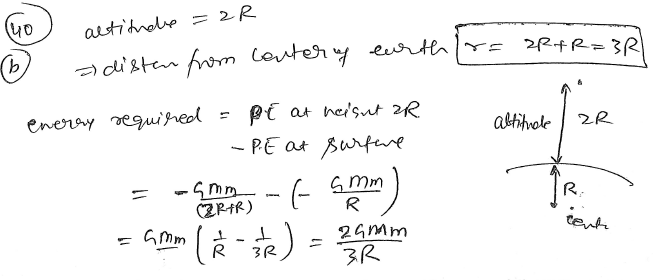 40 altitude = 2R
(b) ⇒ distan from center of earth r = 2R+R = 3R
energy required = PE at height 2R
- P.E at surface
= -GMm/(2R+R) - (- GMm/R)
= GMm (1/R - 1/3R) = 2GMm/3R
altitude 2R
R
centr